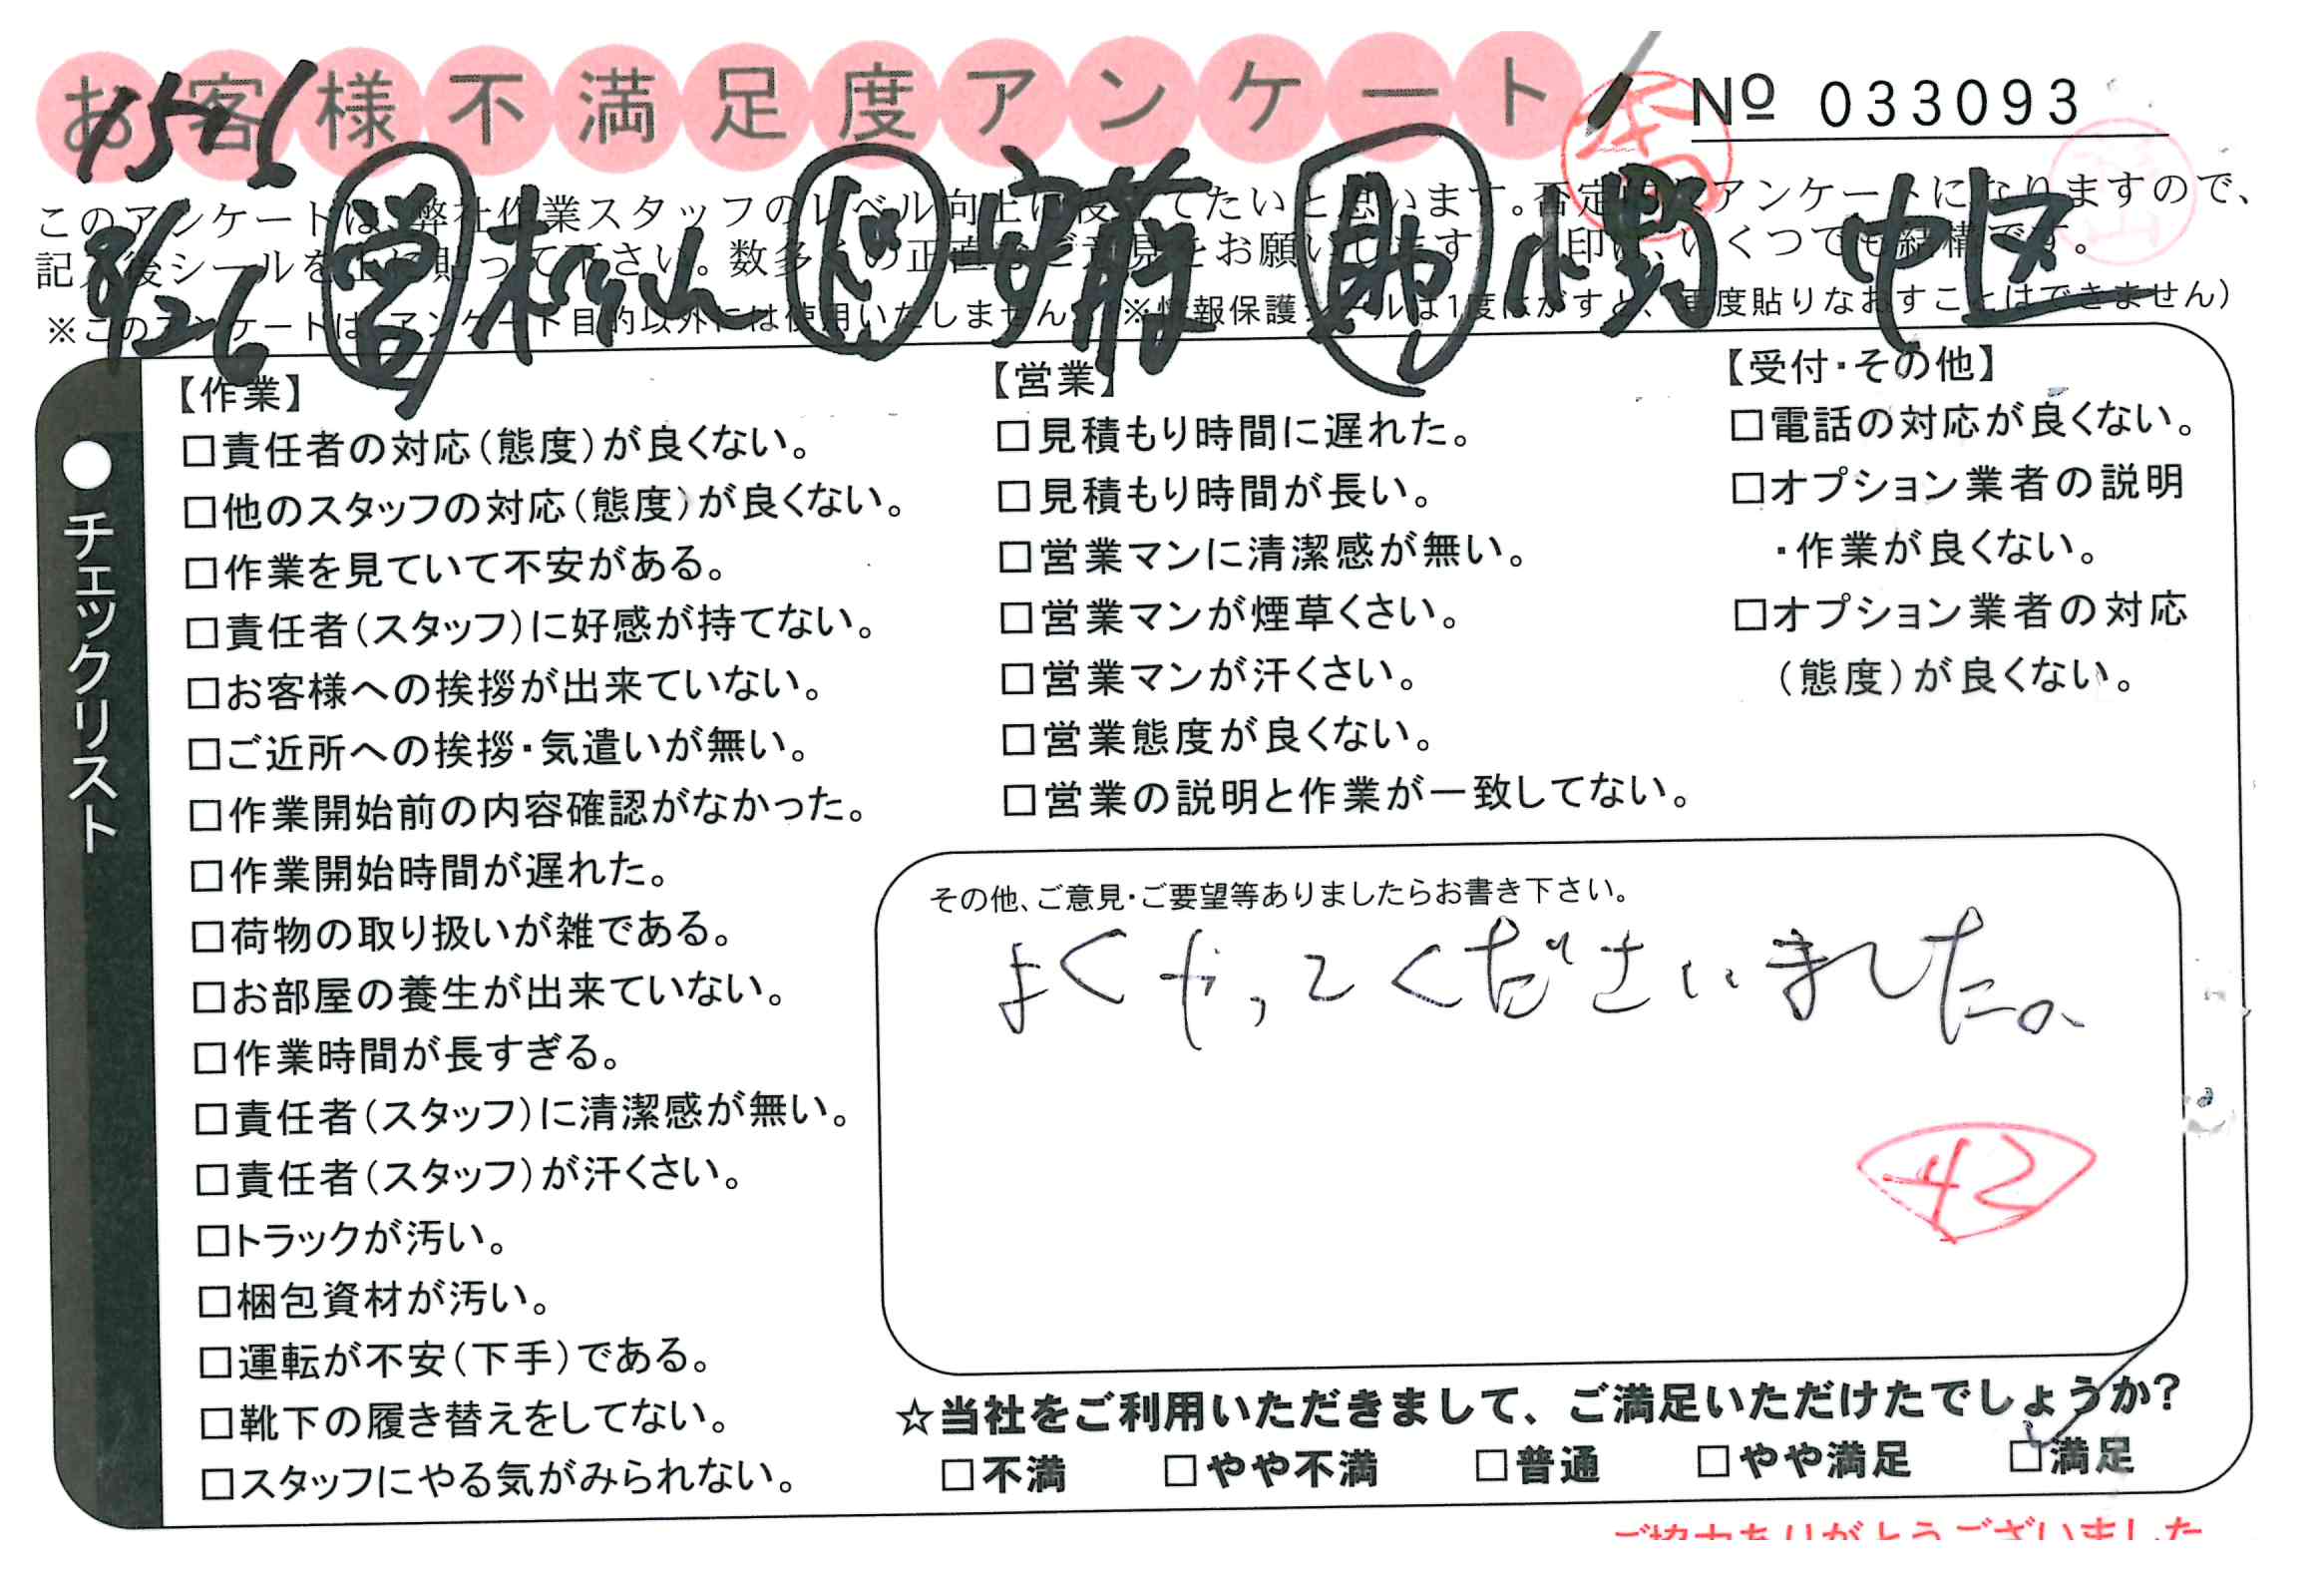 お客様不満足度アンケート
№ 033093
1576
8/26 営 松山 作 安蒜 助 小野 中区
このアンケートは、弊社作業スタッフのレベル向上に役立てたいと思います。否定アンケートになりますので、
記入後シールを上に貼って下さい。数多くの正直なご意見をお願いします。印は、いくつでも結構です。
※このアンケートは、アンケート目的以外には使用いたしません。(※情報保護シールは1度はがすと、再度貼りなおすことはできません)
●チェックリスト
【作業】
□責任者の対応(態度)が良くない。
□他のスタッフの対応(態度)が良くない。
□作業を見ていて不安がある。
□責任者(スタッフ)に好感が持てない。
□お客様への挨拶が出来ていない。
□ご近所への挨拶・気遣いが無い。
□作業開始前の内容確認がなかった。
□作業開始時間が遅れた。
□荷物の取り扱いが雑である。
□お部屋の養生が出来ていない。
□作業時間が長すぎる。
□責任者(スタッフ)に清潔感が無い。
□責任者(スタッフ)が汗くさい。
□トラックが汚い。
□梱包資材が汚い。
□運転が不安(下手)である。
□靴下の履き替えをしてない。
□スタッフにやる気がみられない。
【営業】
□見積もり時間に遅れた。
□見積もり時間が長い。
□営業マンに清潔感が無い。
□営業マンが煙草くさい。
□営業マンが汗くさい。
□営業態度が良くない。
□営業の説明と作業が一致してない。
【受付・その他】
□電話の対応が良くない。
□オプション業者の説明
・作業が良くない。
□オプション業者の対応
(態度)が良くない。
その他、ご意見・ご要望等ありましたらお書き下さい。
よくやってくださいました。
42
☆当社をご利用いただきまして、ご満足いただけたでしょうか?
□不満 □やや不満 □普通 □やや満足 ☑満足
ご協力ありがとうございました